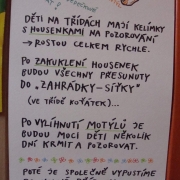 DĚTI NA TŘÍDÁCH MAJÍ KELÍMKY
S HOUSENKAMI NA POZOROVÁNÍ
→ ROSTOU CELKEM RYCHLE.
PO ZAKUKLENÍ HOUSENEK
BUDOU VŠECHNY PŘESUNUTY
DO „ZAHRÁDKY - SÍŤKY"
(VE TŘÍDĚ KOŤÁTEK)...
PO VYLÍHNUTÍ MOTÝLŮ JE
BUDOU MOCI DĚTI NĚKOLIK
DNÍ KRMIT A POZOROVAT.
POTÉ JE SPOLEČNĚ VYPUSTÍME